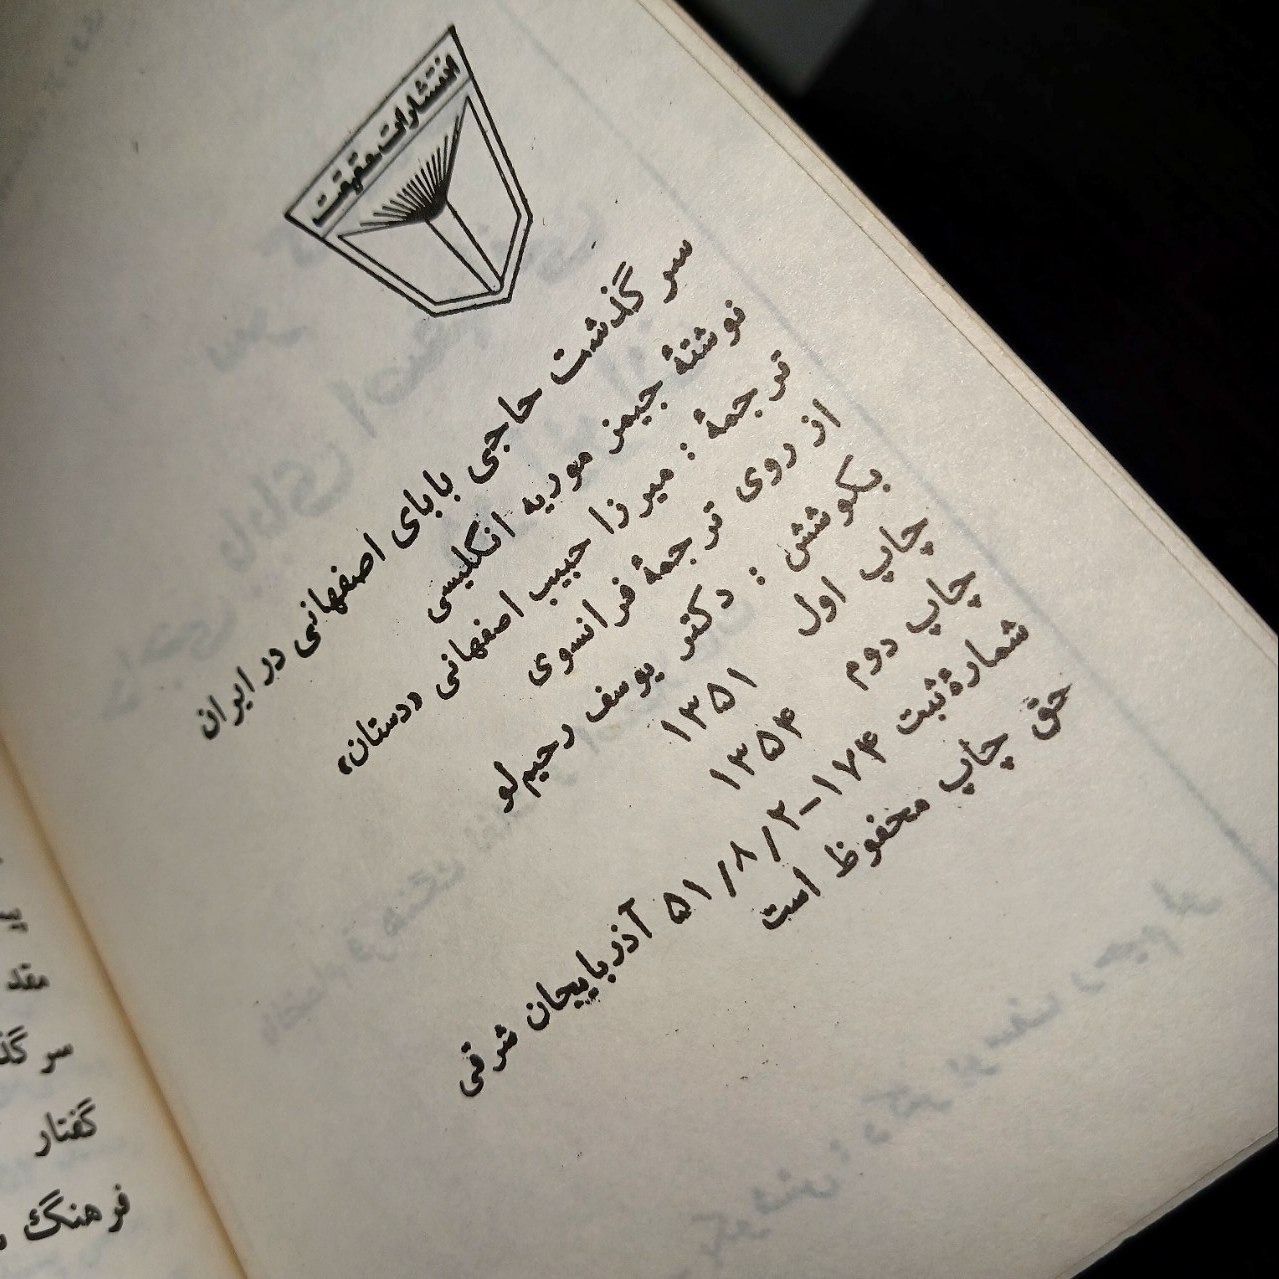 انتشارات حقیقت
سر گذشت حاجی بابای اصفهانی در ایران
نوشتهٔ جیمز موریه انگلیسی
ترجمهٔ : میرزا حبیب اصفهانی «دستان»
از روی ترجمهٔ فرانسوی
بکوشش : دکتر یوسف رحیم‌لو
چاپ اول ۱۳۵۱
چاپ دوم ۱۳۵۴
شمارهٔ ثبت ۱۷۴-۵۱/۸/۲ آذربایجان شرقی
حق چاپ محفوظ است
مقد
سر گذ
گفتار
فرهنگ